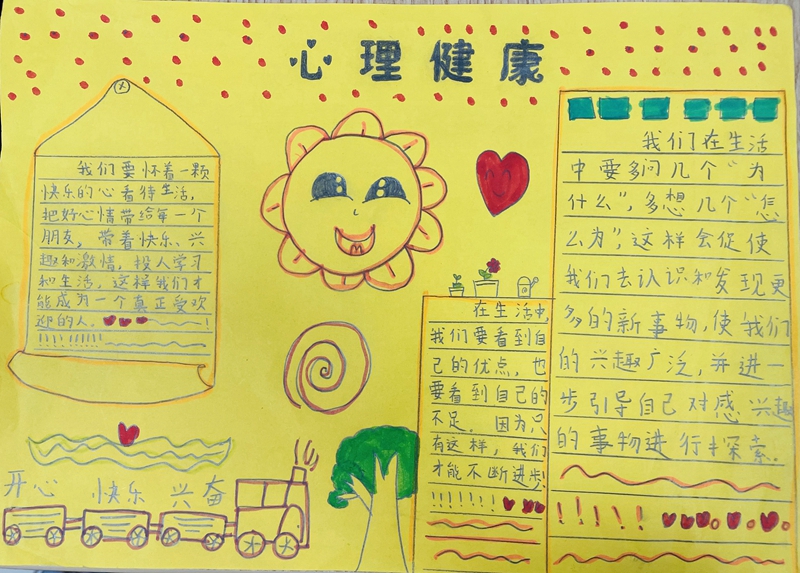 心理健康
我们要怀着一颗
快乐的心看待生活,
把好心情带给每一个
朋友,带着快乐、兴
趣和激情,投人学习
和生活,这样我们才
能成为一个真正受欢
迎的人。
开心 快乐 兴奋
在生活中,
我们要看到自
己的优点,也
要看到自己的
不足。因为只
有这样,我们
才能不断进步!
我们在生活
中要多问几个“为
什么”,多想几个“怎
么为”,这样会促使
我们去认识和发现更
多的新事物,使我们
的兴趣广泛,并进一
步引导自己对感兴趣
的事物进行探索.